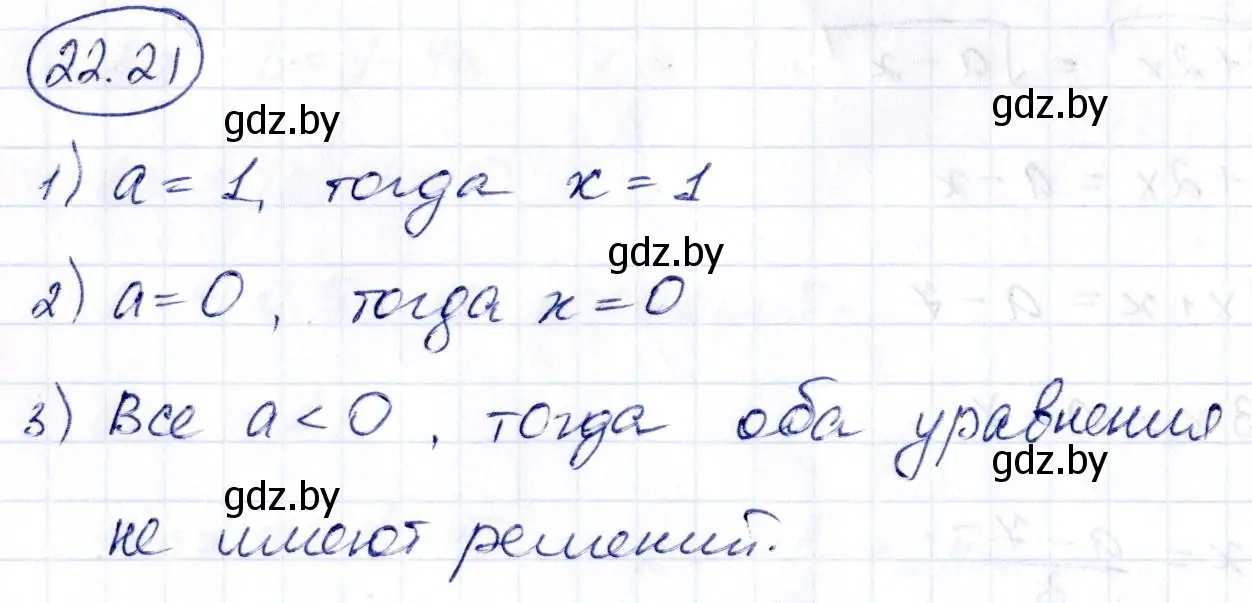 22.21
gdz.by
gdz.by
1) a = 1, тогда x = 1
gdz.by
2) a = 0, тогда x = 0
3) Все a < 0, тогда оба уравнения
gdz.by
gdz.by
не имеют решений.